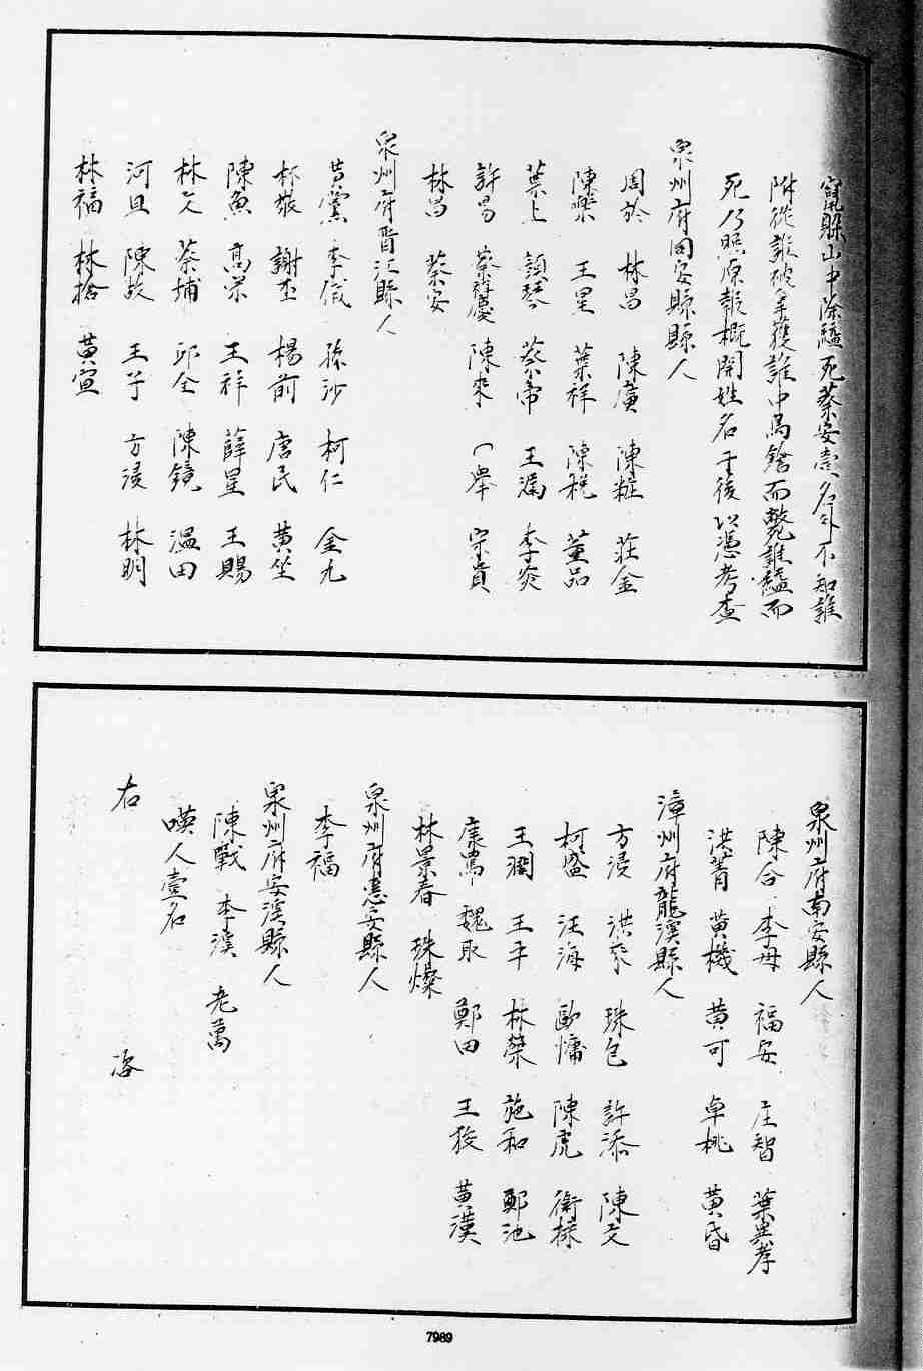 竄縣山中除縊死蔡安當名外不知誰
附從誰被拿獲誰中鳥鎗而斃誰縊而
死乃照原報概開姓名于後以憑考查
泉州府同安縣縣人
周於 林昌 陳廣 陳糚 莊金
陳樂 王星 葉祥 陳稅 董品
葉上 顏琴 蔡帝 王漏 李炎
許昌 蔡禎慶 陳來 舉 宗貴
林昌 蔡安
泉州府晋江縣人
黃黨 李位 孫沙 柯仁 金九
林報 謝丕 楊前 唐民 黃坐
陳魚 高宗 王祥 薛星 王賜
林欠 蔡埔 邱全 陳鏡 溫田
河且 陳故 王子 方浸 林明
林福 林捨 黃宣
泉州府南安縣人
陳合 李母 福安 庄智 葉異孝
洪菁 黃機 黃可 卓桃 黃昏
漳州府龍溪縣人
方浸 洪聚 珠包 許添 陳文
柯盛 汪海 歐慵 陳虎 衛
王潤 王平 林榮 施和 鄭池
康篤 魏取 鄭田 王狻 黃漢
林景春 珠燦
泉州府惠安縣人
李福
泉州府安溪縣人
陳戰 李溪 老萬
嘆人壹名
右 咨
7989